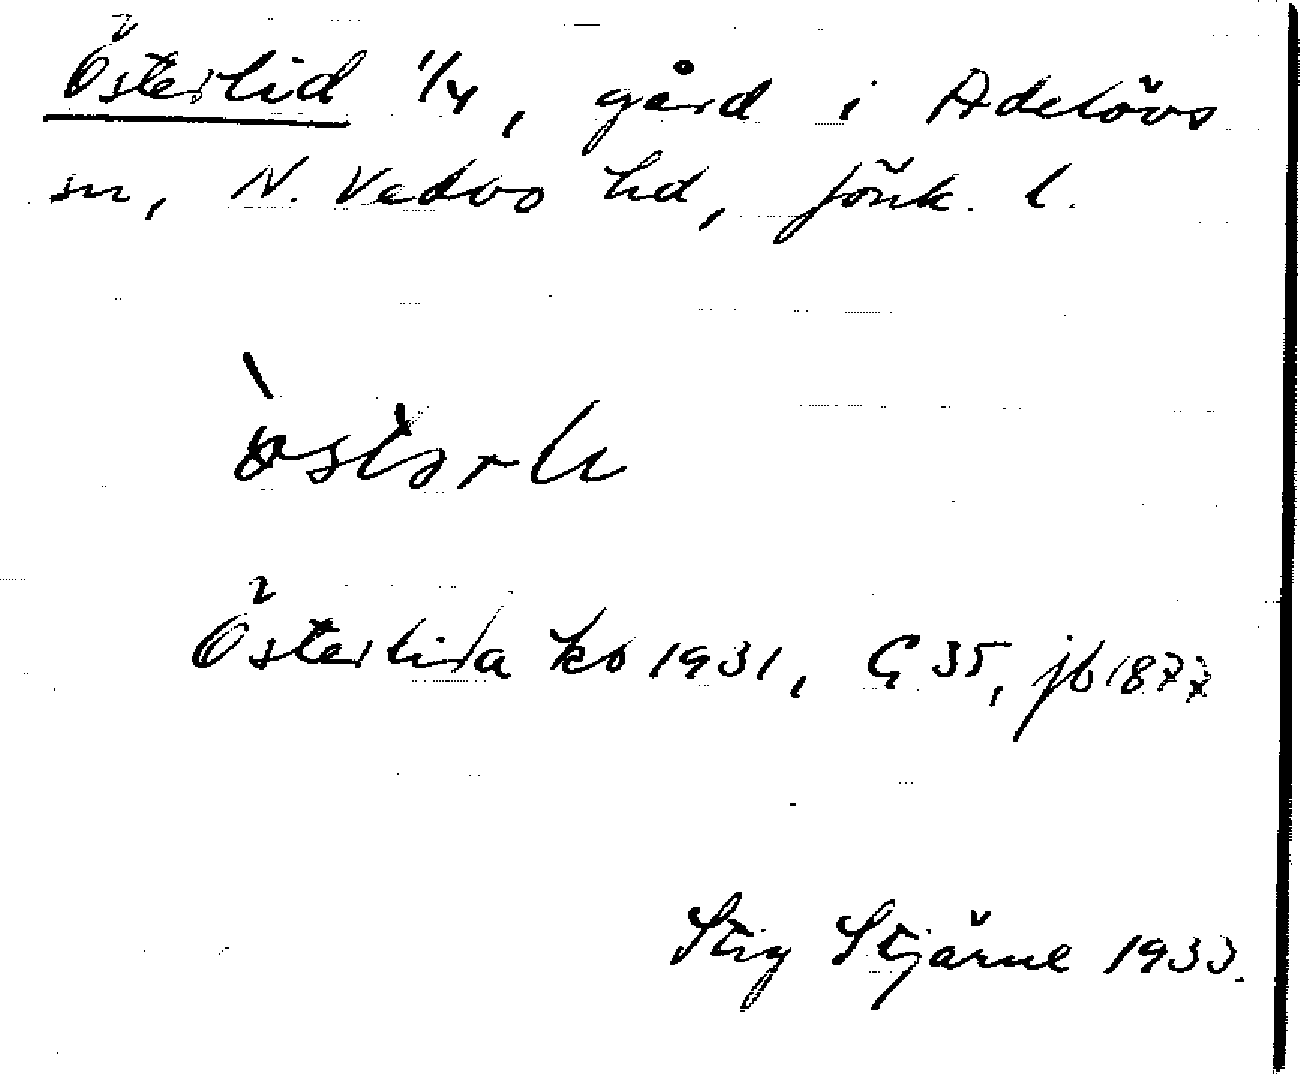 Österlid 1/4, gård i Adelövs
sn, N. Vedbo hd, Jönk. l.
òstərlı
Österlida kb 1931, G 35, jb 1877
Stig Stjärne 1933.